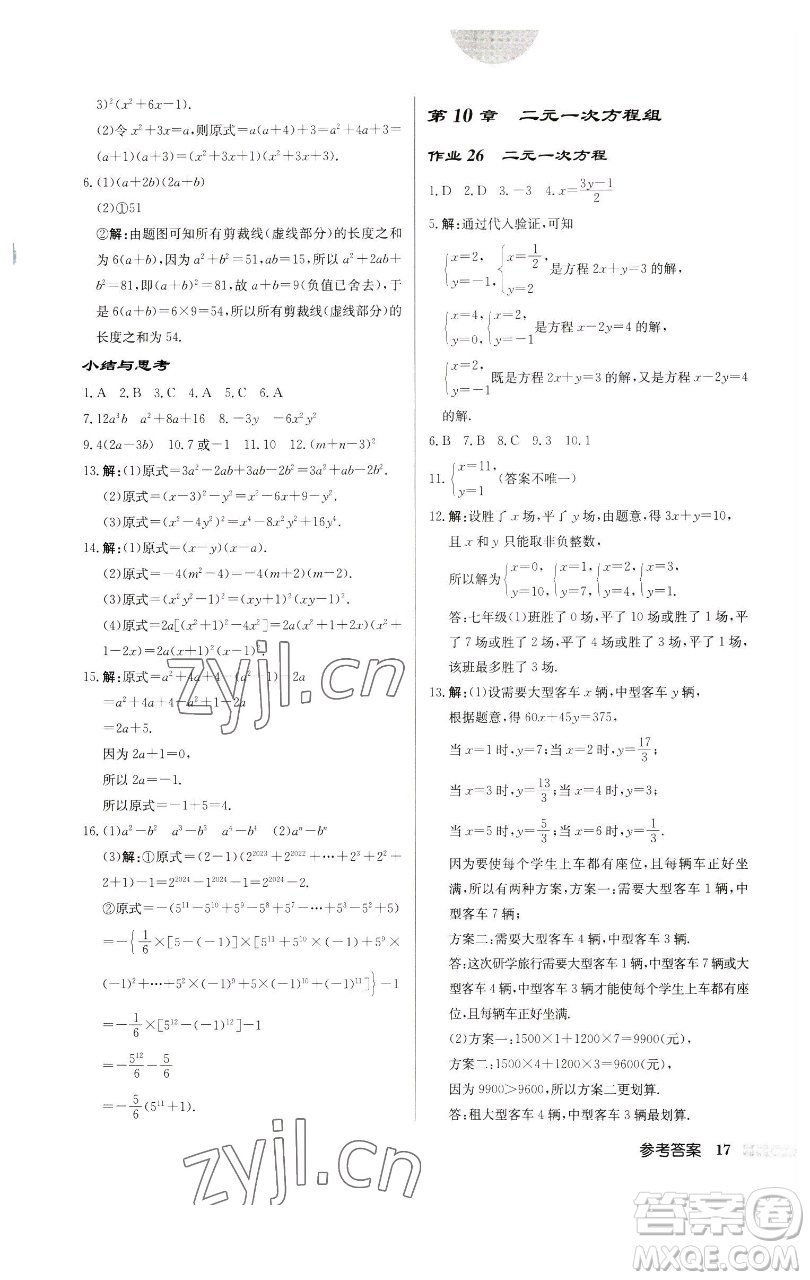 3)²(x²+6x-1).
(2)令 x²+3x=a,则原式=a(a+4)+3=a²+4a+3=
(a+1)(a+3)=(x²+3x+1)(x²+3x+3).
6.(1)(a+2b)(2a+b)
(2)①51
②解:由题图可知所有剪裁线(虚线部分)的长度之和
为 6(a+b),因为 a²+b²=51,ab=15,所以 a²+2ab
+b²=81,即(a+b)²=81,所以 a+b=9(负值已舍去),于
是 6(a+b)=6×9=54,所以所有剪裁线(虚线部分)的
长度之和为 54.
小结与思考
1.A 2.B 3.C 4.A 5.C 6.A
7.12a³b a²+8a+16 8.-3y -6x²y²
9.4(2a-3b) 10.7 或-1 11.10 12.(m+n-3)²
13.解:(1)原式=3a²-2ab+3ab-2b²=3a²+ab-2b².
(2)原式=(x-3)²-y²=x²-6x+9-y².
(3)原式=(x²-4y²)²=x⁴-8x²y²+16y⁴.
14.解:(1)原式=(x-y)(x-a).
(2)原式=-4(m²-4)=-4(m+2)(m-2).
(3)原式=(x²y²-1)²=(xy+1)²(xy-1)².
(4)原式=2a[(x²+1)²-4x²]=2a(x²+1+2x)(x²+
1-2x)=2a(x+1)²(x-1)².
15.解:原式=a²+4a+4-(a²-1)-2a
=a²+4a+4-a²+1-2a
=2a+5.
因为 2a+1=0,
所以 2a=-1.
所以原式=-1+5=4.
16.(1)a²-b² a³-b³ a⁴-b⁴ (2)aⁿ-bⁿ
(3)解:①原式=(2-1)(2²⁰²³+2²⁰²²+…+2³+2²+
2+1)-1=2²⁰²⁴-1-1=2²⁰²⁴-2.
②原式=-(5¹¹-5¹⁰+5⁹-5⁸+…+5³-5²+5)
=-{1/6×[5-(-1)][5¹¹+5¹⁰×(-1)+5⁹×
(-1)²+…+5²×(-1)⁹+5×(-1)¹⁰+(-1)¹¹]}-1
=-1/6×[5¹²-(-1)¹²]-1
=-5¹²/6-5/6
=-5/6(5¹¹+1).
第 10 章 二元一次方程组
作业 26 二元一次方程
1.D 2.D 3.-3 4.x=(3y-1)/2
5.解:通过代入验证,可知
{x=2, y=-1, {x=1/2, y=2 是方程 2x+y=3 的解,
{x=4, y=0, {x=2, y=-1 是方程 x-2y=4 的解,
{x=2, y=-1 既是方程 2x+y=3 的解,又是方程 x-2y=4
的解.
6.B 7.B 8.C 9.3 10.1
11.{x=11, y=1 (答案不唯一)
12.解:设胜了 x 场,平了 y 场,由题意,得 3x+y=10,
且 x 和 y 只能取非负整数,
所以解为{x=0, y=10, {x=1, y=7, {x=2, y=4, {x=3, y=1.
答:七年级(1)班胜了 0 场,平了 10 场或胜了 1 场,
平了 7 场或胜了 2 场,平了 4 场或胜了 3 场,平了 1 场,
该班最多胜了 3 场.
13.解:(1)设需要大型客车 x 辆,中型客车 y 辆,
根据题意,得 60x+45y=375,
当 x=1 时,y=7;当 x=2 时,y=17/3;
当 x=3 时,y=13/3;当 x=4 时,y=3;
当 x=5 时,y=5/3;当 x=6 时,y=1/3.
因为要使每个学生上车都有座位,且每辆车正好坐
满,所以有两种方案,方案一:需要大型客车 1 辆,中
型客车 7 辆;
方案二:需要大型客车 4 辆,中型客车 3 辆.
答:这次研学旅行需要大型客车 1 辆,中型客车 7 辆
或大型客车 4 辆,中型客车 3 辆才能使每个学生上车都有座
位,且每辆车正好坐满.
(2)方案一:1500×1+1200×7=9900(元),
方案二:1500×4+1200×3=9600(元),
因为 9900>9600,所以方案二更划算.
答:租大型客车 4 辆,中型客车 3 辆最划算.
参考答案 17
zyjl.cn
zyjl.cn
答案圈
MXQE.COM